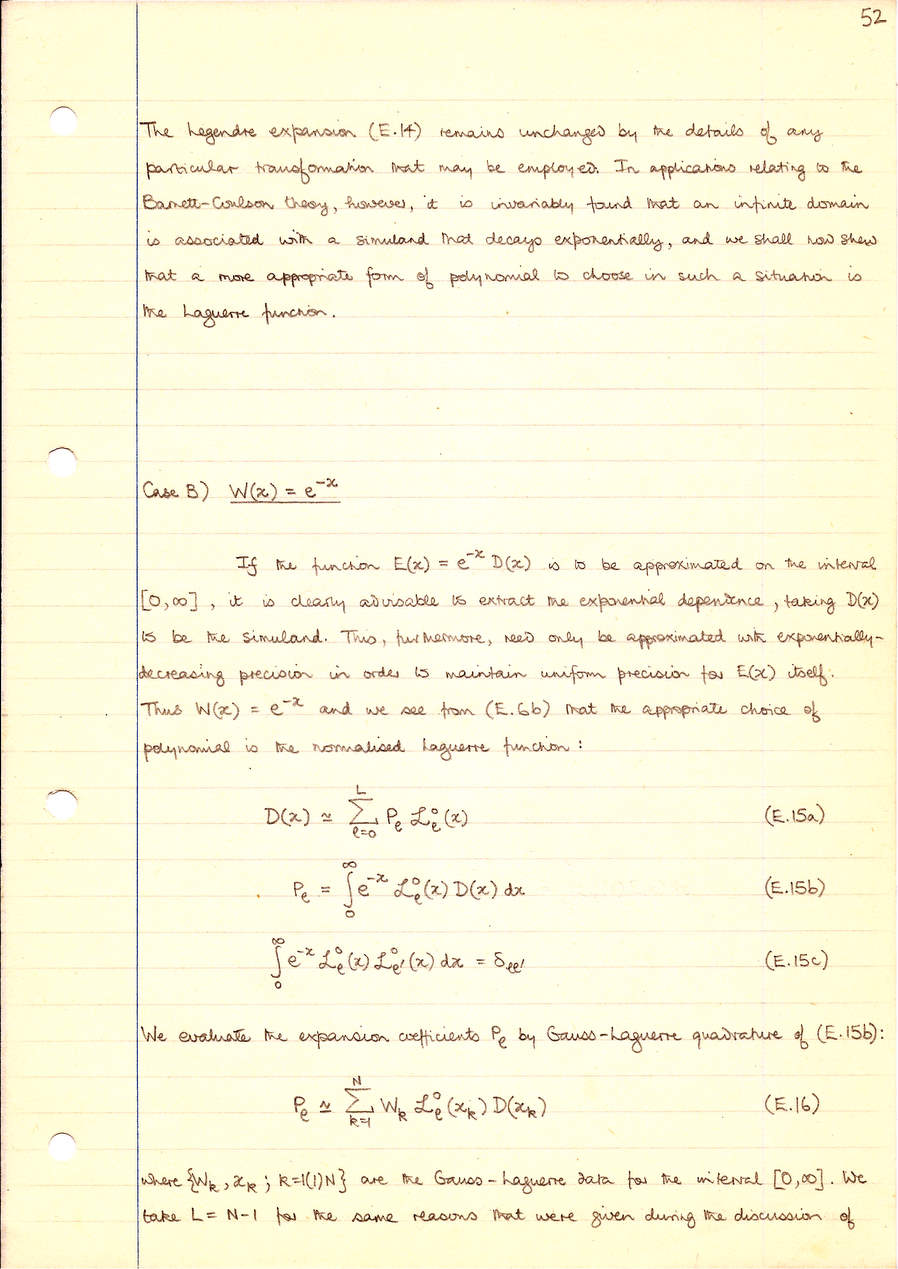 52
The Legendre expansion (E.14) remains unchanged by the details of any
particular transformation that may be employed. In applications relating to the
Barnett-Coulson theory, however, it is invariably found that an infinite domain
is associated with a simuland that decays exponentially, and we shall now shew
that a more appropriate form of polynomial to choose in such a situation is
the Laguerre function.
Case B) W(x) = e^{-x}
If the function E(x) = e^{-x} D(x) is to be approximated on the interval
[0,∞], it is clearly advisable to extract the exponential dependence, taking D(x)
to be the simuland. This, furthermore, need only be approximated with exponentially-
decreasing precision in order to maintain uniform precision for E(x) itself.
Thus W(x) = e^{-x} and we see from (E.6b) that the appropriate choice of
polynomial is the normalised Laguerre function :
D(x) ≃ \sum_{ℓ=0}^{L} P_ℓ ℒ_ℓ^0(x) (E.15a)
P_ℓ = \int_0^∞ e^{-x} ℒ_ℓ^0(x) D(x) dx (E.15b)
\int_0^∞ e^{-x} ℒ_ℓ^0(x) ℒ_{ℓ'}^0(x) dx = δ_{ℓℓ'} (E.15c)
We evaluate the expansion coefficients P_ℓ by Gauss-Laguerre quadrature of (E.15b):
P_ℓ ≃ \sum_{k=1}^{N} W_k ℒ_ℓ^0(x_k) D(x_k) (E.16)
where {W_k, x_k ; k=1(1)N} are the Gauss-Laguerre data for the interval [0,∞]. We
take L = N-1 for the same reasons that were given during the discussion of